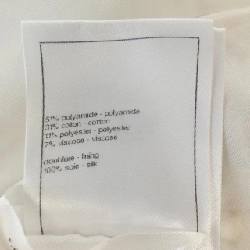 51% polyamide - polyamide
31% coton - cotton
11% polyester - polyester
7% viscose - viscose
doublure - lining
100% soie - silk